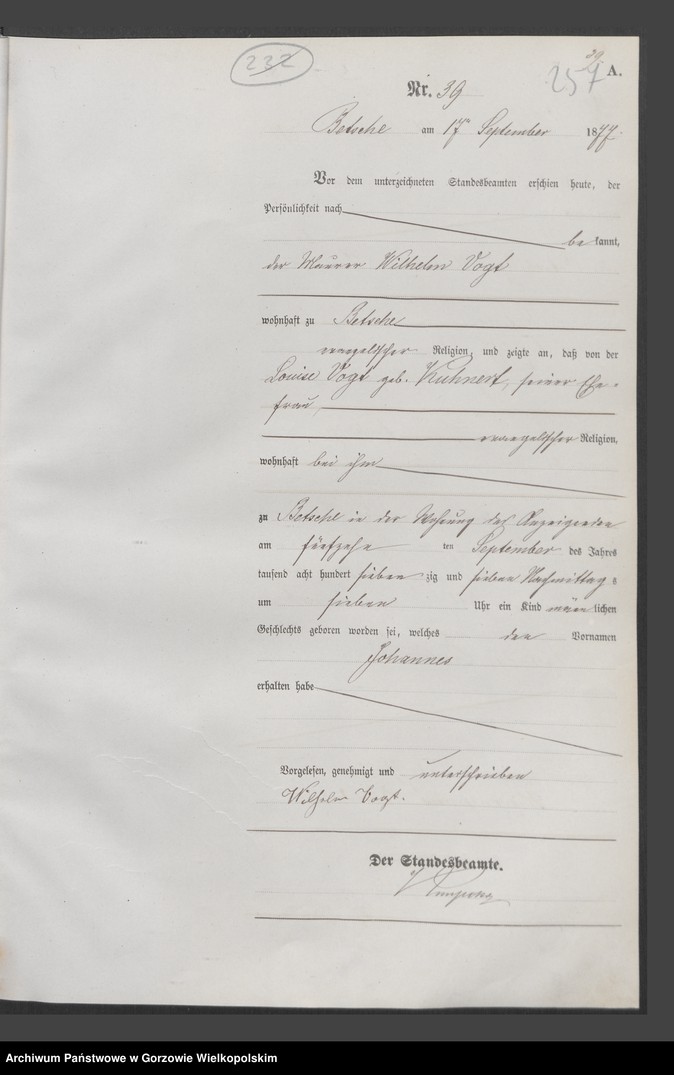 232
29
257 A.
Nr. 39
Betsche am 17ten September 1877.
Vor dem unterzeichneten Standesbeamten erschien heute, der
Persönlichkeit nach
be kannt,
der Maurer Wilhelm Vogt
wohnhaft zu Betsche
evangelischer Religion, und zeigte an, daß von der
Louise Vogt geb. Kuhnert, seiner Ehe-
frau,
evangelischer Religion,
wohnhaft bei ihm
zu Betsche in der Wohnung des Anzeigenden
am fünfzehn ten September des Jahres
tausend acht hundert sieben zig und sieben Nachmittag s
um sieben Uhr ein Kind männ lichen
Geschlechts geboren worden sei, welches den Vornamen
Johannes
erhalten habe
Vorgelesen, genehmigt und unterschrieben
Wilhelm Vogt.
Der Standesbeamte.
Archiwum Państwowe w Gorzowie Wielkopolskim